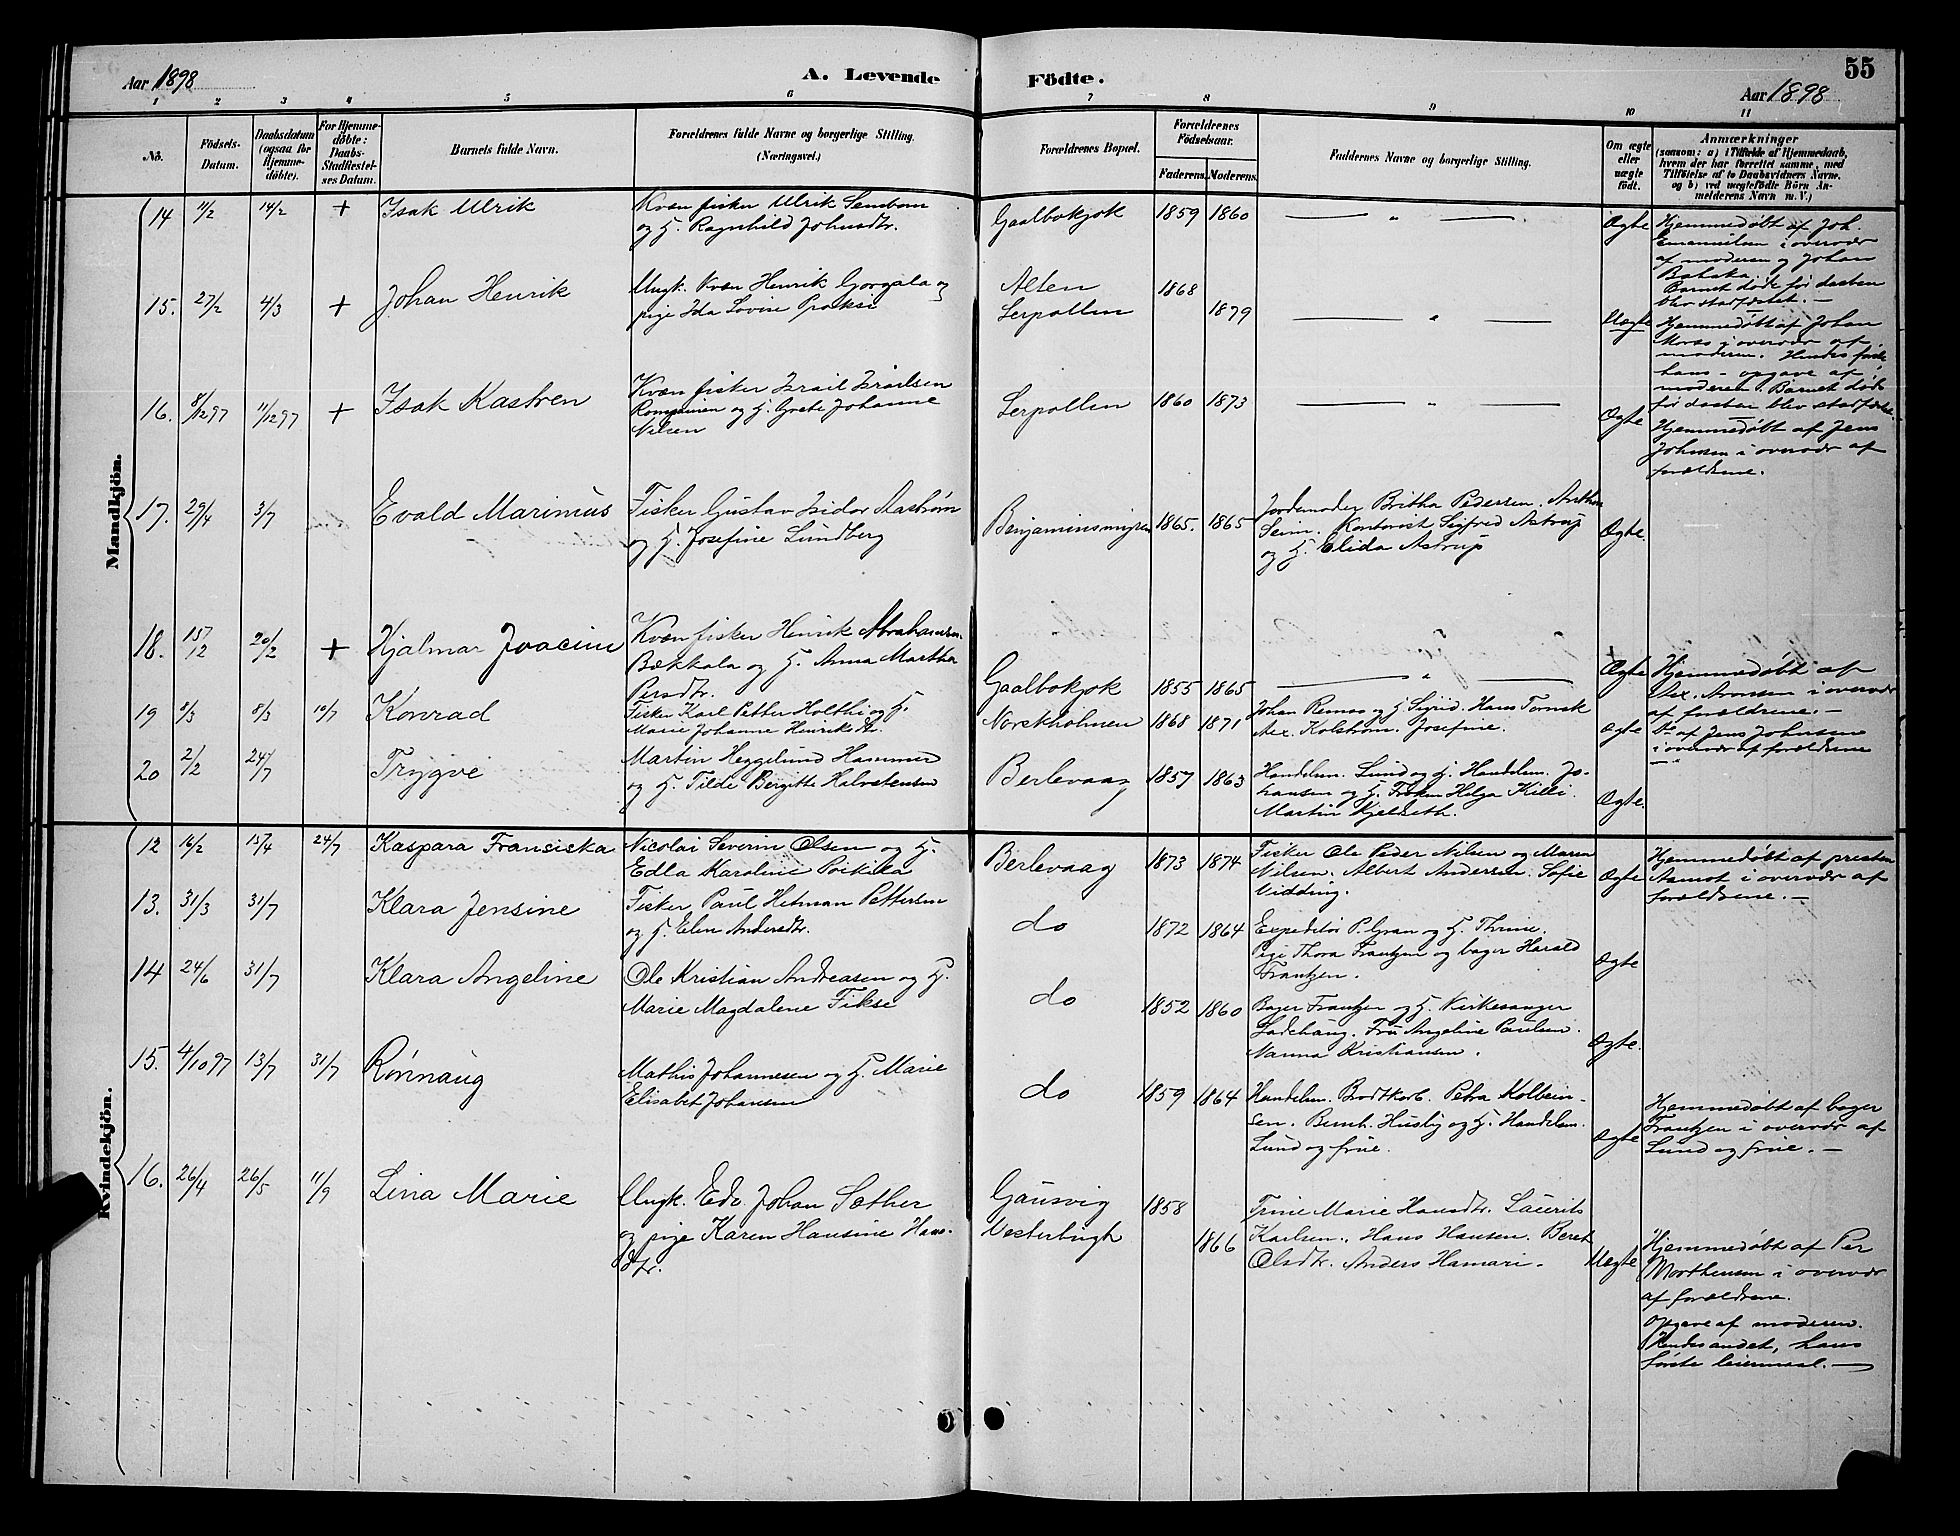 Aar 1898
A. Levende
Födte.
Aar 1898
55
1 2 3 4 5 6 7 8 9 10 11
No.
Födsels-
Datum.
Daabsdatum
(ogsaa for
Hjemme-
döbte).
For Hjemme-
döbte:
Daabs-
Stadfæstel-
ses Datum.
Barnets fulde Navn.
Forældrenes fulde Navne og borgerlige Stilling.
(Næringsvei.)
Forældrenes Bopæl.
Forældrenes
Födselsaar.
Faderens. Moderens.
Faddernes Navne og borgerlige Stilling.
Om ægte
eller
uægte
födt.
Anmærkninger
(saasom: a) i Tilfælde af Hjemmedaab,
hvem der har forrettet samme, med
Tilföielse af to Daabsvidners Navne,
og b) ved uægtefödte Börn An-
melderens Navn m. V.)
Mandkjön.
14 11/2 14/2 + Isak Ulrik
Kvæn fisker Ulrik
og H. Ragnhild Johnsdtr.
Gaalbokjok 1859 1860 — " — Ægte
Hjemmedøbt af Joh.
Emanuelsen i overvær
af moderen og Johan
Barnet døde før daaben
blev stadfæstet. —
15. 27/2 4/3 + Johan Henrik
Ungk. Kvæn Henrik Gorgala og
pige Ida Lovise
Alten 1868
Lerpollen 1879 — " — Uægte
Hjemmedøbt af Johan
i overvær af
moderen. Hendes første
hans - opgave af
moderen. Barnet døde
før daaben blev stadfæstet.
16. 8/12 97 11/12 97 + Isak Kastren
Kvæn fisker Israil Israilsen
og H. Grete Johanne
Nilsen
Lerpollen 1860 1873 — " — Ægte
Hjemmedøbt af Jens
Johnsen i overvær af
forældrene.
17. 29/4 3/7 Evald Marinius
Fisker Gustav Isidor Aastrøm
og H. Josefine Lundberg
1865. 1865
Jordemoder Britha Pedersen.
Seim. Kontorist Sigfred Astrup
og H. Elida Astrup
Ægte.
18. 15/12 20/2 + Hjalmar Joacim
Kvæn fisker Henrik Abrahamsen
Bækkala og H. Anna Martha
Persdtr.
Gaalbokjok 1855 1865 — " — Ægte
Hjemmedøbt af
Alex. Aronsen i overvær
af forældrene. —
19 2/3 8/3 10/7 Konrad
Fisker Karl Petter Holthi og H.
Marie Johanne Henriksdtr.
Norskholmen 1868 1871
Johan Remas og H. Sigrid. Hans Tornsk
Alex. Kolstrøm. Josefine.
Ægte
Do af Jens Johnsen
i overvær af forældrene
20 2/2 24/7 Trygve
Martin Heggelund Hammer
og H. Tilde Bergitte Halvstensen
Berlevaag 1857 1863
Handelsm. Lund og H. Handelsm. Jo-
hansen og H. Frøken Helga Killi.
Martin Kjeldseth.
Ægte.
Kvindekjön.
12 16/2 15/4 24/7 Kaspara Fransiska
Nicolai Severin Olsen og H.
Edla Karoline Poikika
Berlevaag 1873 1874
Fisker Ole Peder Nilsen og Maren
Nilsen. Albert Andersen. Sofie
Widding.
Ægte
Hjemmedøbt af presten
Aamot i overvær af
forældrene. —
13. 31/3 31/7 Klara Jensine
Fisker Paul Hetman Pettersen
og H. Elen Andersdtr.
do 1872 1864
Expeditør P. Gran og H. Thrine.
Pige Thora Frantzen og bager Harald
Frantzen.
Ægte
14 24/6 31/7 Klara Angeline
Ole Kristian Andreasen og H.
Marie Magdalene Fikse
do 1852 1860
Bager Frantzen og H. Kirkesanger
Ladehaug. Fru Angeline Paulsen.
Nanna Kristiansen.
Ægte.
15. 4/10 97 13/7 31/7 Rønnaug
Mathis Johannesen og H. Marie
Elisabet Johansen
do 1859 1864
Handelsm. Brodtkorb. Petra Kolbein-
sen. Bernh. Husby og H. Handelsm.
Lund og frue.
Ægte
Hjemmedøbt af bager
Frantzen i overvær af
Lund og frue. —
16. 26/4 26/5 11/9 Lina Marie
Ungk. Edv. Johan Sæther
og pige Karen Hansine Hans-
dtr.
Gausvig 1858
Vesterbugt 1866
Trine Marie Hansdtr. Laurits
Karlsen. Hans Hansen. Beret
Olsdtr. Anders Hamari.
Uægte
Hjemmedøbt af Per
Morthensen i overvær
af forældrene.
Opgave af moderen.
Hendes andet, hans
første leiermaal. —